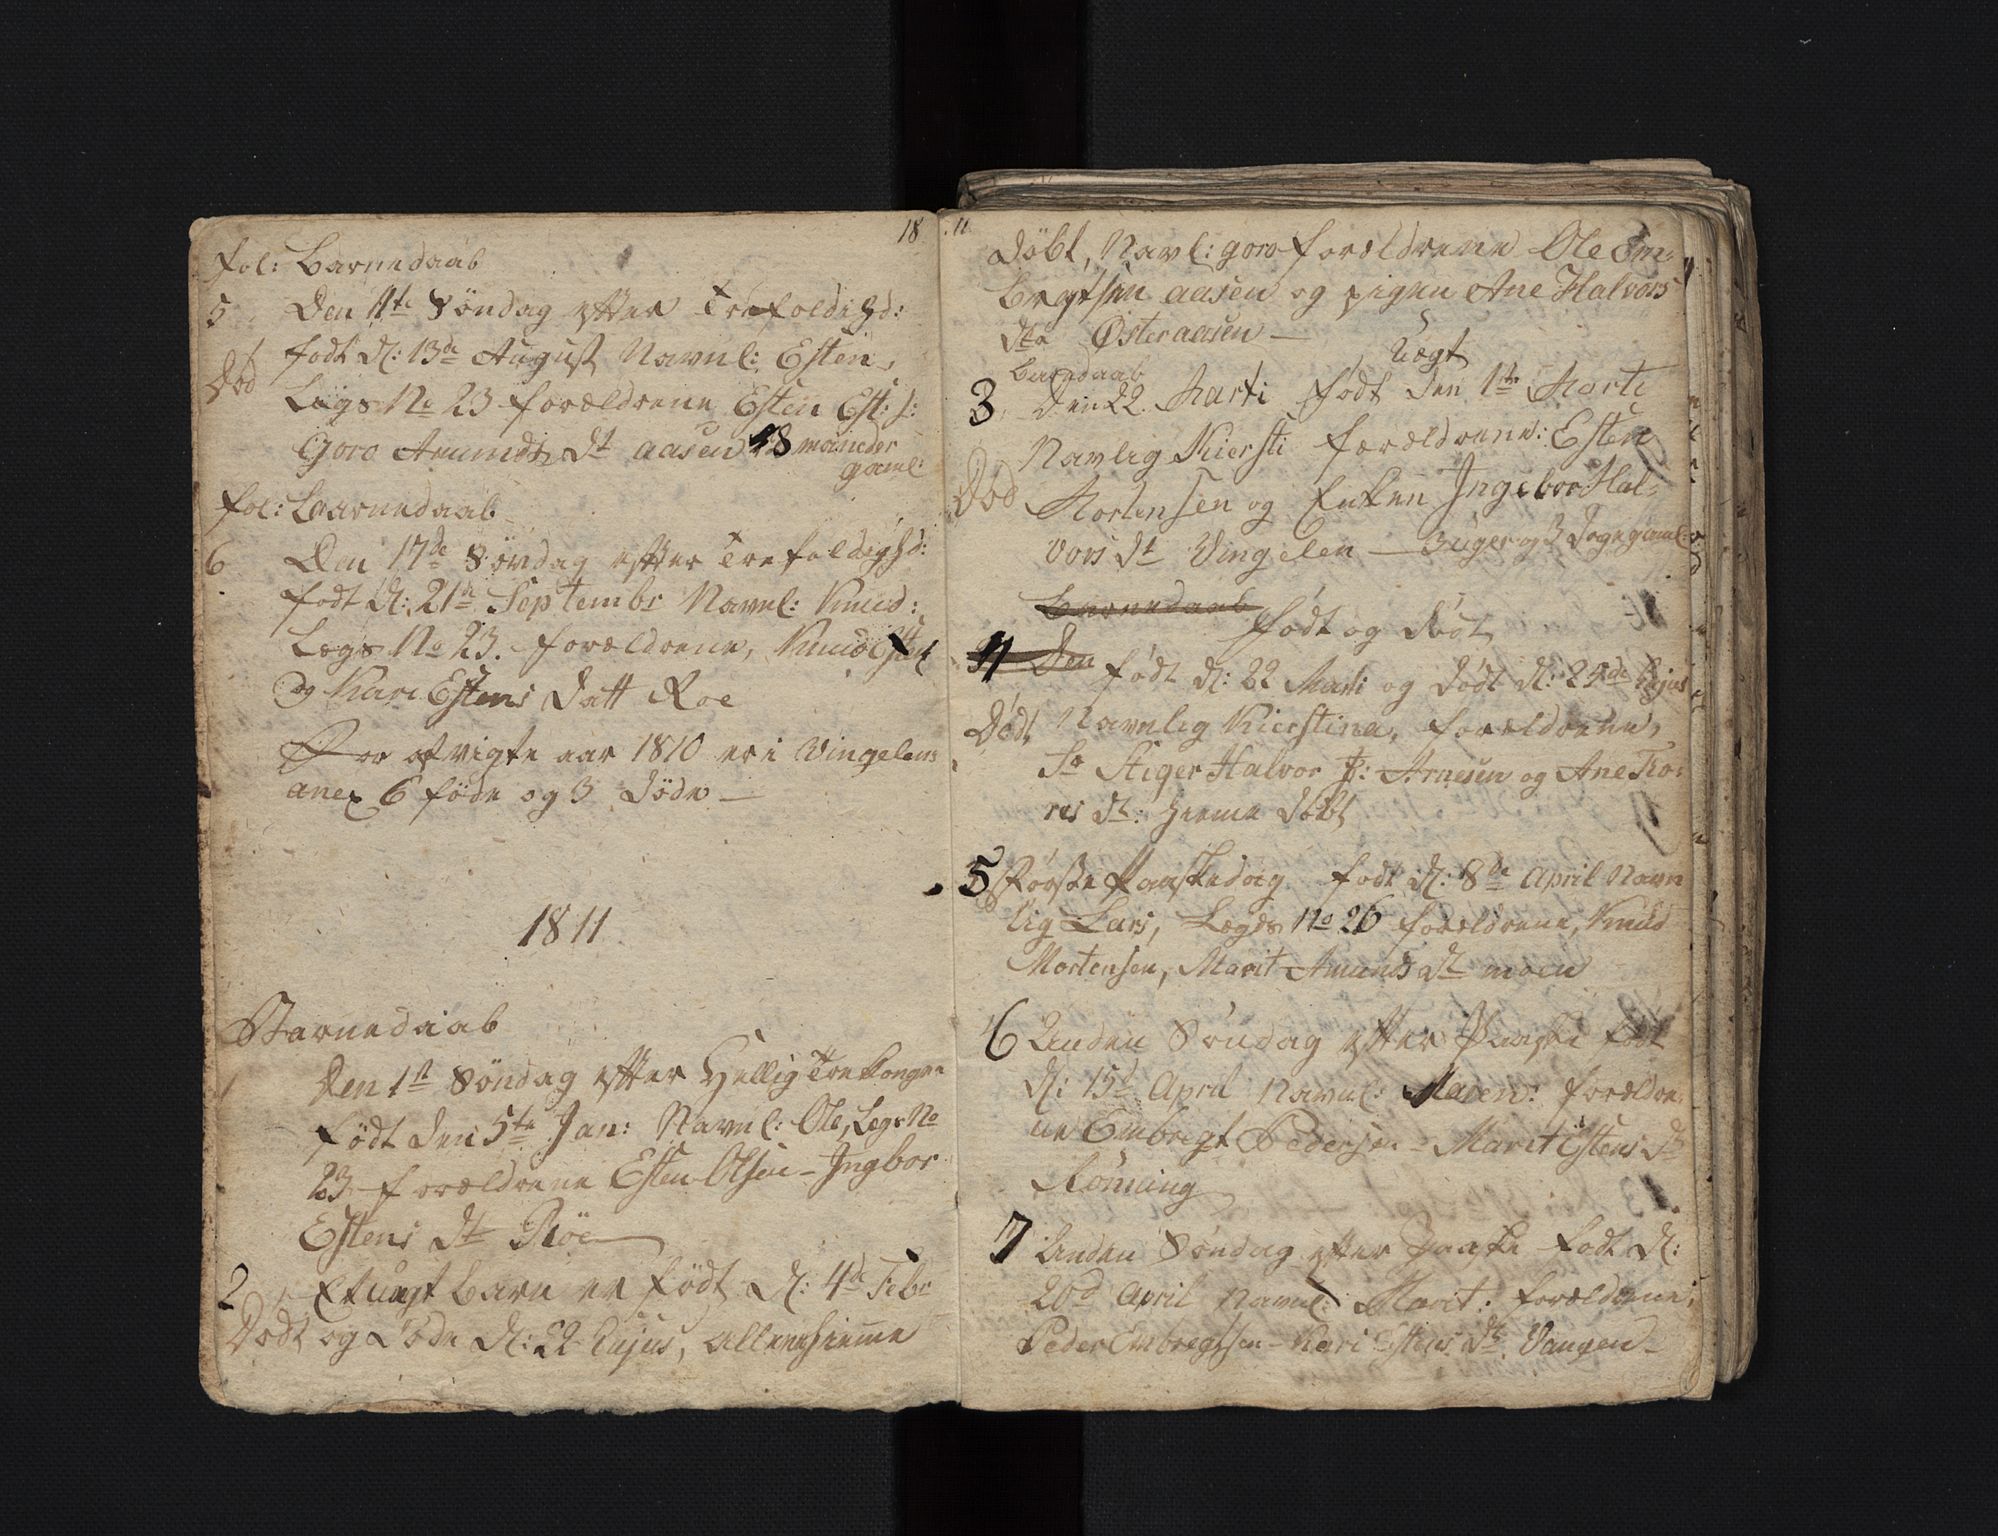 18
fol: Barnedaab
5 Den 11te Söndag efter Trefoldighd:
födt d: 13de August Navnl: Esten,
Död
Lægs No 23 forældrene Esten Est: s:
Goro Amunds Dt aasen 18 maaneder
gaml:
fol: Barnedaab
6 Den 17de Söndag efter Trefoldighd:
födt d: 21de Septembr Navnl: Knud:
Lægs No 23. forældrene, Knud
og Kari Estens Datt Roe
For afvigte aar 1810 er i Vingelens
anex 6 föde og 3 döde —
1811
Barnedaab
1 Den 1st Söndag efter Hellig Tre Konger
födt den 5te Jan: Navnl: Ole, Lægs No
23 forældrene Esten Olsen – Ingbor
Estens Dt Röe
2 Et uægt barn er födt d: 4de Febr
Dödt og Döde d: 22 hujus, allene hiemme
11
döbt, Navnl: goro forældrene Ole Em-
bregtsen aasen og pigen Ane Halvors
Dtr Østeraasen —
Barnedaab uægt
3 Den 22 Marti födt den 1te Marti
Navnlig Kiersti forældrene: Esten
Död Mortensen og Enken Ingebor Hal-
vors Dt Vingelen — 3 uger og 3 Dage gaml:
Barnedaab födt og döt
4 Den födt d: 22 Marti og dödt d: 25de hujus
Dödt Navnlig Kierstina, forældrene,
Stiger Halvor Arnesen og Ane To-
res Dt: hieme döbt
5 Förste Paaskedag födt d: 8de April Navn
lig Lars, Lægds No 26 forældrene, Knud
Mortensen, Marit Amunds Dt moen
6 Anden Söndag efter Paaske födt
d: 15d April Navnl: Maren: forældre-
ne Embregt Pedersen – Marit Estens Dt
Röning
7 Anden Söndag efter Paaske födt d:
20d April Navnl: Marit: forældrene,
Peder Embregtsen – Kari Estens Dt. Vangen –